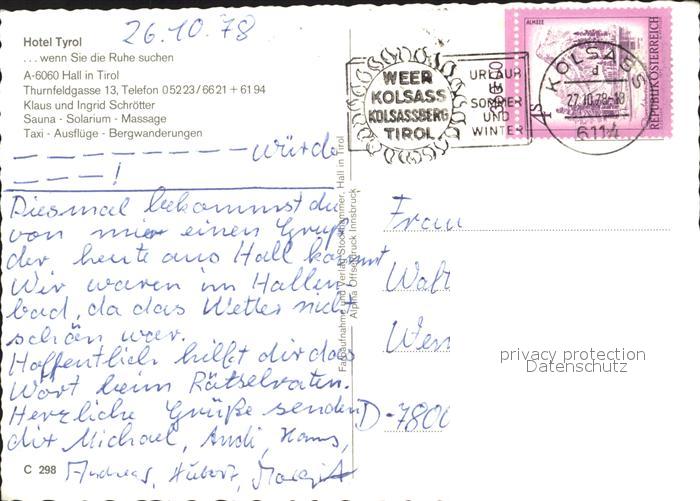 26.10.78
Hotel Tyrol
... wenn Sie die Ruhe suchen
A-6060 Hall in Tirol
Thurnfeldgasse 13, Telefon 05223/6621 + 6194
Klaus und Ingrid Schrötter
Sauna - Solarium - Massage
Taxi - Ausflüge - Bergwanderungen
WEER
KOLSASS
KOLSASSBERG
TIROL
URLAUB
SOMMER
UND
WINTER
ALMSEE
REPUBLIK ÖSTERREICH
KOLSASS
d
27.10.78-18
6114
– – – – – – – – – würde
– – – !
Diesmal bekommst du
von mir einen Gruß
der heute aus Hall kommt
Wir waren im Hallen
bad, da das Wetter nicht
schön war.
Hoffentlich hilft dir das
Wort beim Rätselraten.
Herzliche Grüße senden
dir Michael, Andi, Hans,
Andreas, Hubert,
Farbaufnahme und Verlag Stockhammer, Hall in Tirol
Alpina Offsetdruck Innsbruck
Frau
Walt
D-7800
privacy protection
Datenschutz
C 298